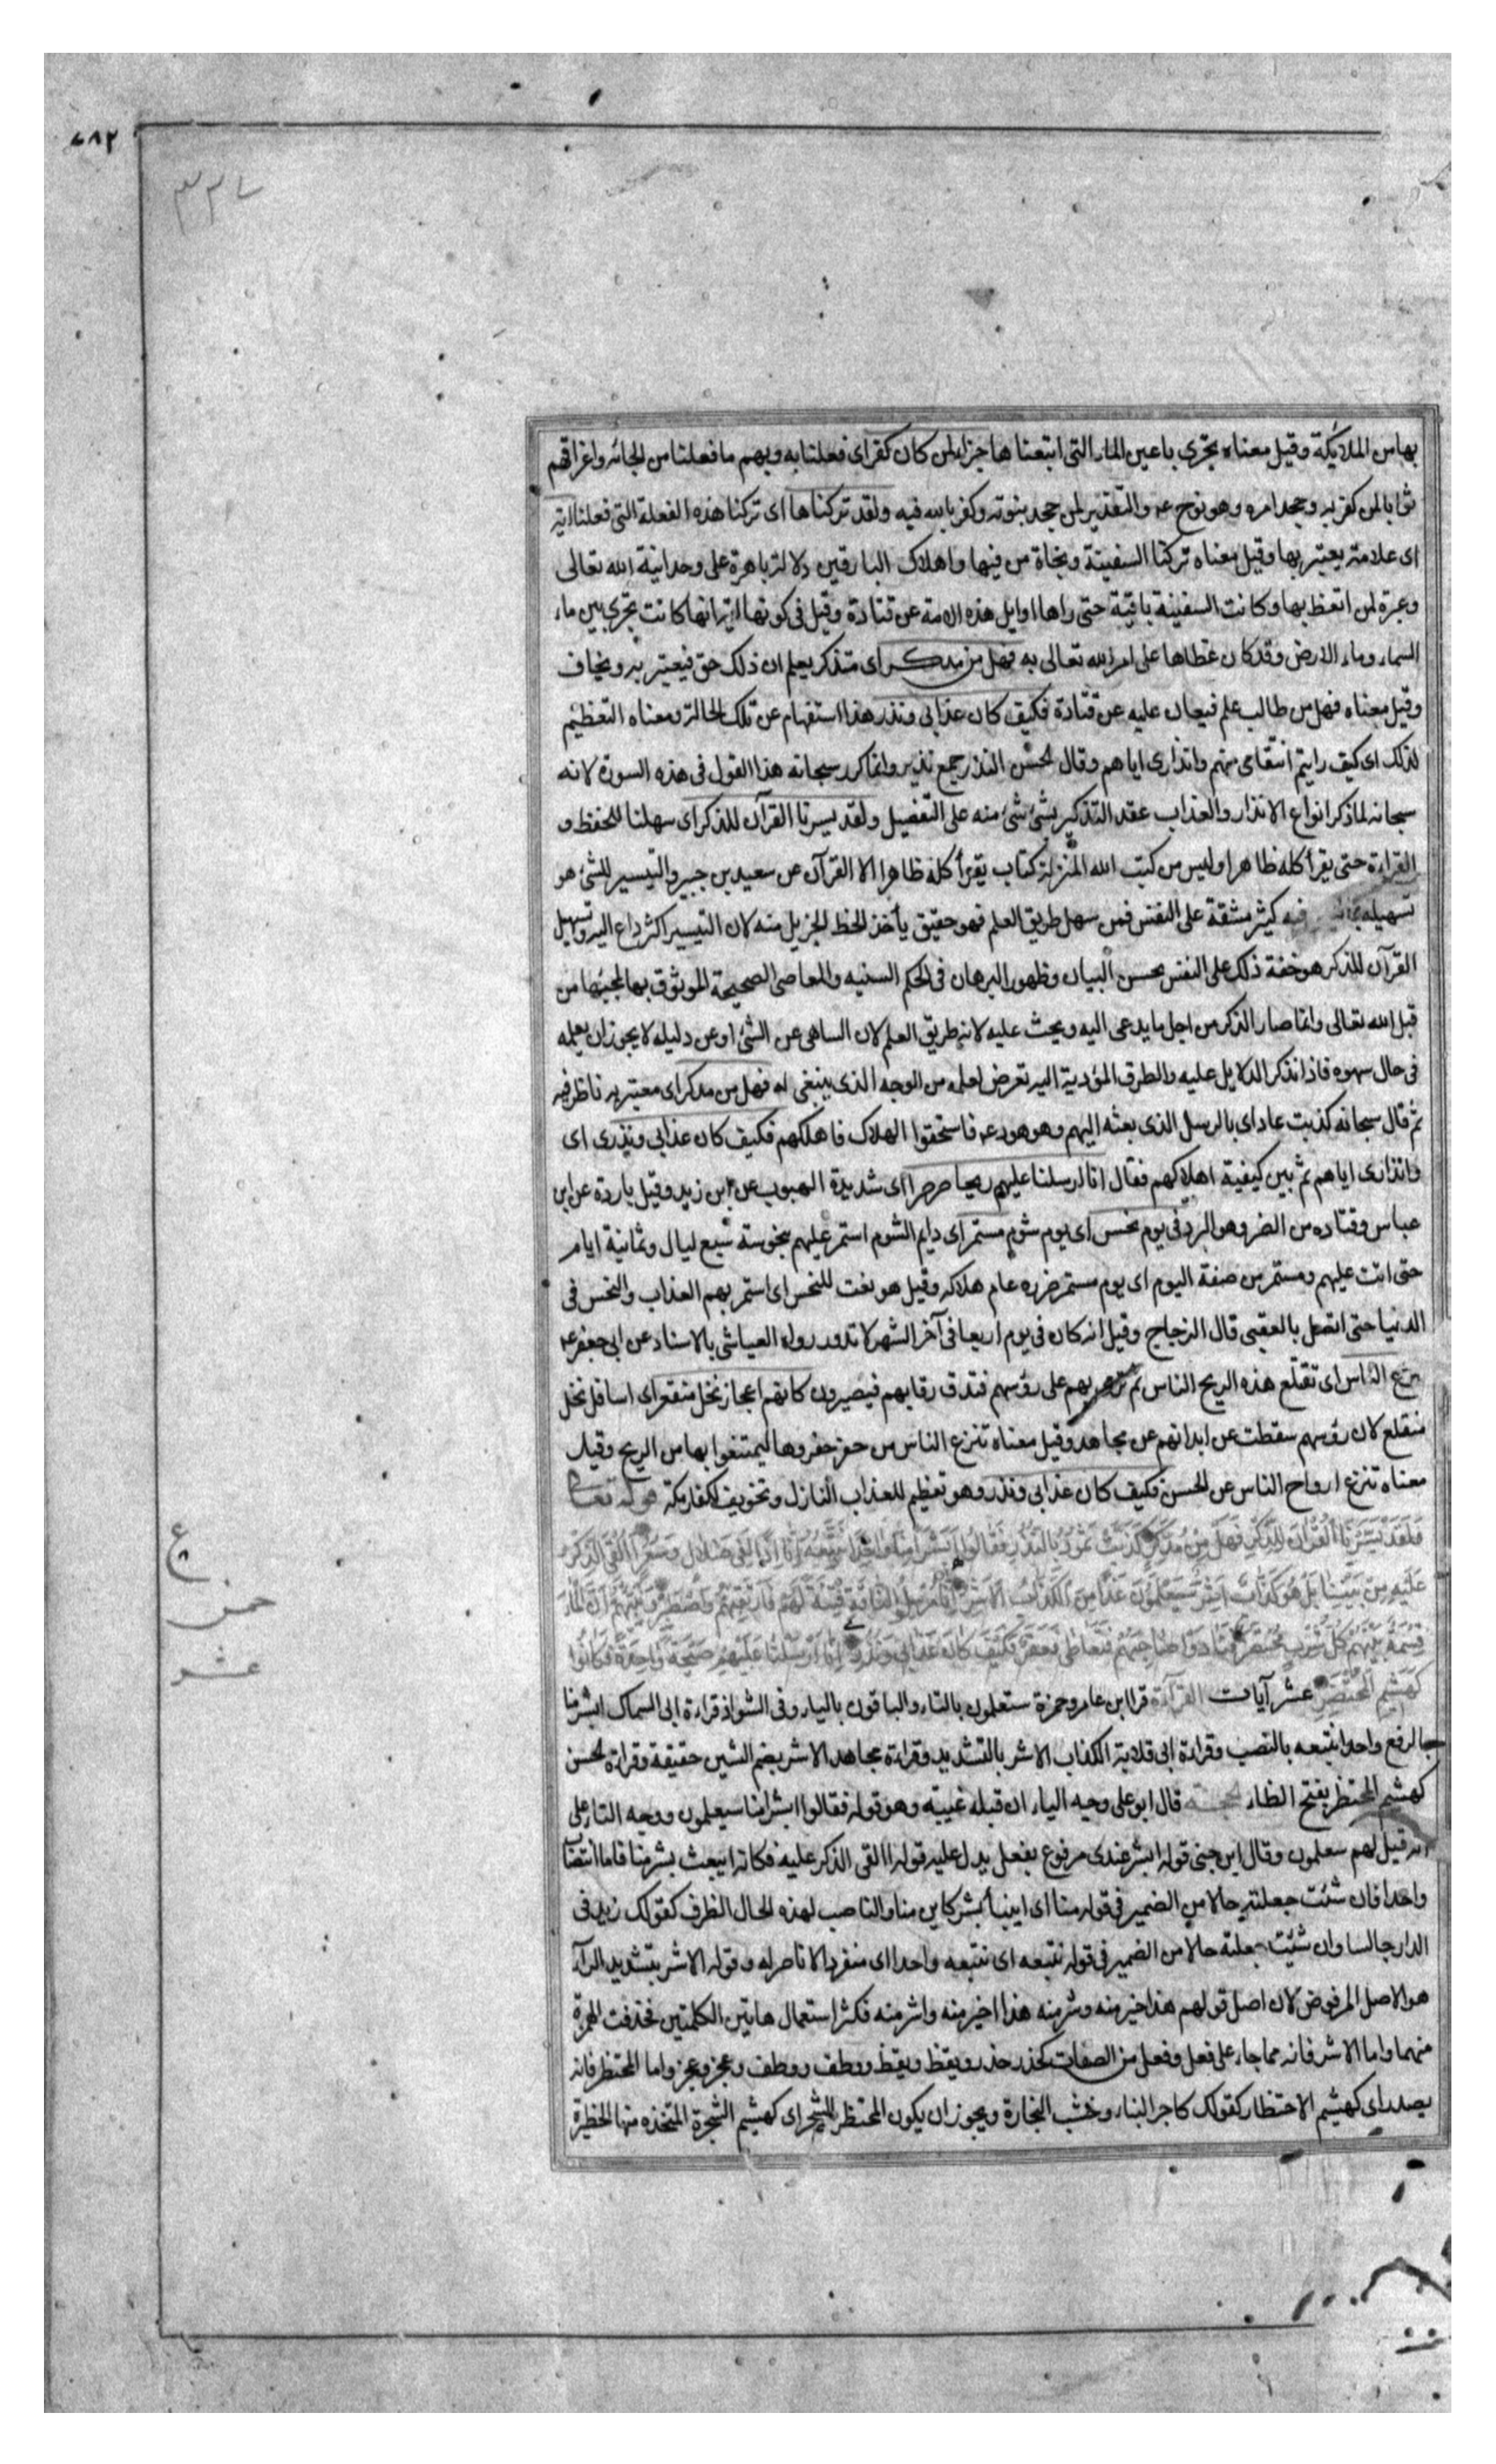 ٧٨٢
٣٣٧
بها من الملائكة وقيل معناه تجرى باعين الماء التى اتبعناها جزاء لمن كان كفر اى فعلنا به وبهم ما فعلنا من انجائه واغراقهم
ثوابا لمن كفر به وجحد امره وهو نوح عم والتقدير لمن جحد بنبوته وكفر بالله فيه ولقد تركناها اى تركنا هذه الفعلة التى فعلنا اية
اى علامة يعتبر بها وقيل معناه تركنا السفينة ونجاة من فيها واهلاك الباقين دلالة باهرة على وحدانية الله تعالى
وعبرة لمن اتعظ بها وكانت السفينة باقية حتى راها اوايل هذه الامة عن قتادة وقيل فى كونها اية انها كانت تجرى بين ماء
السماء وماء الارض وقد كان غطاها على امر الله تعالى به فهل من مدكر اى متذكر يعلم ان ذلك حق فيعتبر به ويخاف
وقيل معناه فهل من طالب علم فيعان عليه عن قتادة فكيف كان عذابى ونذر هذا استفهام عن تلك الحالة ومعناه التعظيم
لذلك اى كيف رايتم انتقامى منهم وانذارى اياهم وقال الحسن النذر جمع نذير وانما كرر سبحانه هذا القول فى هذه السورة لانه
سبحانه لما ذكر انواع الانذار والعذاب عقد التذكير بشئ شئ منه على التفصيل ولقد يسرنا القرآن للذكر اى سهلنا للحفظ و
القراءة حتى يقرأ كله ظاهرا وليس من كتب الله المنزلة كتاب يقرأ كله ظاهرا الا القرآن عن سعيد بن جبير والتيسير للشئ هو
تسهيله فيه كثير مشقة على النفس فمن سهل طريق العلم فهو حقيق يأخذ الحظ الجزيل منه لان التيسير اكثر داع اليه وتسهيل
القرآن للذكر هو خفة ذلك على النفس بحسن البيان وظهور البرهان فى الحكم السنيه والمعاصى الصحيحة الموثوق بها لمجيئها من
قبل الله تعالى وانما صار الذكر من اجل ما يدعى اليه ويحث عليه لانه طريق العلم لان الساهى عن الشئ او عن دليله لا يجوز ان يعلمه
فى حال سهوه فاذا تذكر الدلايل عليه والطرق المؤدية اليه تعرض لعلمه من الوجه الذى ينبغى له فهل من مدكر اى معتبر به ناظر فيه
ثم قال سبحانه كذبت عاد اى بالرسل الذى بعثه اليهم وهو هود عم فاستحقوا الهلاك فاهلكهم فكيف كان عذابى ونذرى اى
وانذارى اياهم ثم بين كيفية اهلاكهم فقال انا ارسلنا عليهم ريحا صرصرا اى شديدة الهبوب عن ابن زيد وقيل باردة عن ابن
عباس وقتاده من الصر وهو البرد فى يوم نحس اى يوم شوم مستمر اى دايم الشوم استمر عليهم بنحوسته سبع ليال وثمانية ايام
حتى اتت عليهم ومستمر من صفة اليوم اى يوم مستمر ضرره عام هلاكه وقيل هو نعت للنحس اى استمر بهم العذاب والنحس فى
الدنيا حتى اتصل بالعقبى قال الزجاج وقيل انه كان فى يوم اربعا فى آخر الشهر لا تدور رواه العياشى بالاسناد عن ابى جعفر عم
تنزع الناس اى تقلع هذه الريح الناس ثم ترمى بهم على رؤسهم فتدق رقابهم فيصيرون كانهم اعجاز نخل منقعر اى اسافل نخل
منقلع لان رؤسهم سقطت عن ابدانهم عن مجاهد وقيل معناه تنزع الناس من حفر حفروها ليمتنعوا بها من الريح وقيل
معناه تنزع ارواح الناس عن الحسن فكيف كان عذابى ونذر وهو تعظيم للعذاب النازل وتخويف لكفار مكة قوله تعالى
وَلَقَدْ يَسَّرْنَا الْقُرْآنَ لِلذِّكْرِ فَهَلْ مِنْ مُدَّكِرٍ كَذَّبَتْ ثَمُودُ بِالنُّذُرِ فَقَالُوا أَبَشَرًا مِنَّا وَاحِدًا نَتَّبِعُهُ إِنَّا إِذًا لَفِي ضَلَالٍ وَسُعُرٍ أَأُلْقِيَ الذِّكْرُ
عَلَيْهِ مِنْ بَيْنِنَا بَلْ هُوَ كَذَّابٌ أَشِرٌ سَيَعْلَمُونَ غَدًا مَنِ الْكَذَّابُ الْأَشِرُ إِنَّا مُرْسِلُو النَّاقَةِ فِتْنَةً لَهُمْ فَارْتَقِبْهُمْ وَاصْطَبِرْ وَنَبِّئْهُمْ أَنَّ الْمَاءَ
قِسْمَةٌ بَيْنَهُمْ كُلُّ شِرْبٍ مُحْتَضَرٌ فَنَادَوْا صَاحِبَهُمْ فَتَعَاطَى فَعَقَرَ فَكَيْفَ كَانَ عَذَابِي وَنُذُرِ إِنَّا أَرْسَلْنَا عَلَيْهِمْ صَيْحَةً وَاحِدَةً فَكَانُوا
كَهَشِيمِ الْمُحْتَظِرِ عشر آيات القراءة قرا ابن عامر وحمزة ستعلمون بالتاء والباقون بالياء وفى الشواذ قراءة ابى السماك ابشر منا
بالرفع واحدا نتبعه بالنصب وقراءة ابى قلابة الكذاب الاشر بالتشديد وقراءة مجاهد الاشر بضم الشين خفيفة وقراءة الحسن
كهشيم المحتظر بفتح الظاء الحجة قال ابو على وجه الياء ان قبله غيبة وهو قوله فقالوا ابشرا منا سيعلمون ووجه التاء على
انه قيل لهم ستعلمون وقال ابن جنى قوله ابشر عندى مرفوع بفعل يدل عليه قوله االقى الذكر عليه فكانه ايبعث بشر منا فاما انتصاب
واحدا فان شئت جعلته حالا من الضمير فى قوله منا اى اينبأ بشر كاين منا والناصب لهذه الحال الظرف كقولك زيد فى
الدار جالسا وان شئت جعلته حالا من الضمير فى قوله نتبعه اى نتبعه واحدا اى منفردا لا ناصر له وقوله الاشر بتشديد الراء
هو الاصل المرفوض لان اصل قولهم هذا خير منه وشر منه هذا اخير منه واشر منه فكثر استعمال هاتين الكلمتين فحذفت الهمزة
منهما واما الاشر فانه مما جاء على فعل وفعل من الصفات كحذر حذر ويقظ ويقظ ووطف ووطف وعجز وعجز واما المحتظر فانه
مصدر اى كهشيم الاحتظار كقولك كاجر البناء وخشب النجارة ويجوز ان يكون المحتظر الشجر اى كهشيم الشجرة المتخذه منها الحظيرة
ع
حمن
عشر